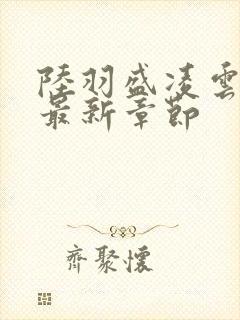 陸羽盛凌雲
最新章節
齊聚懷